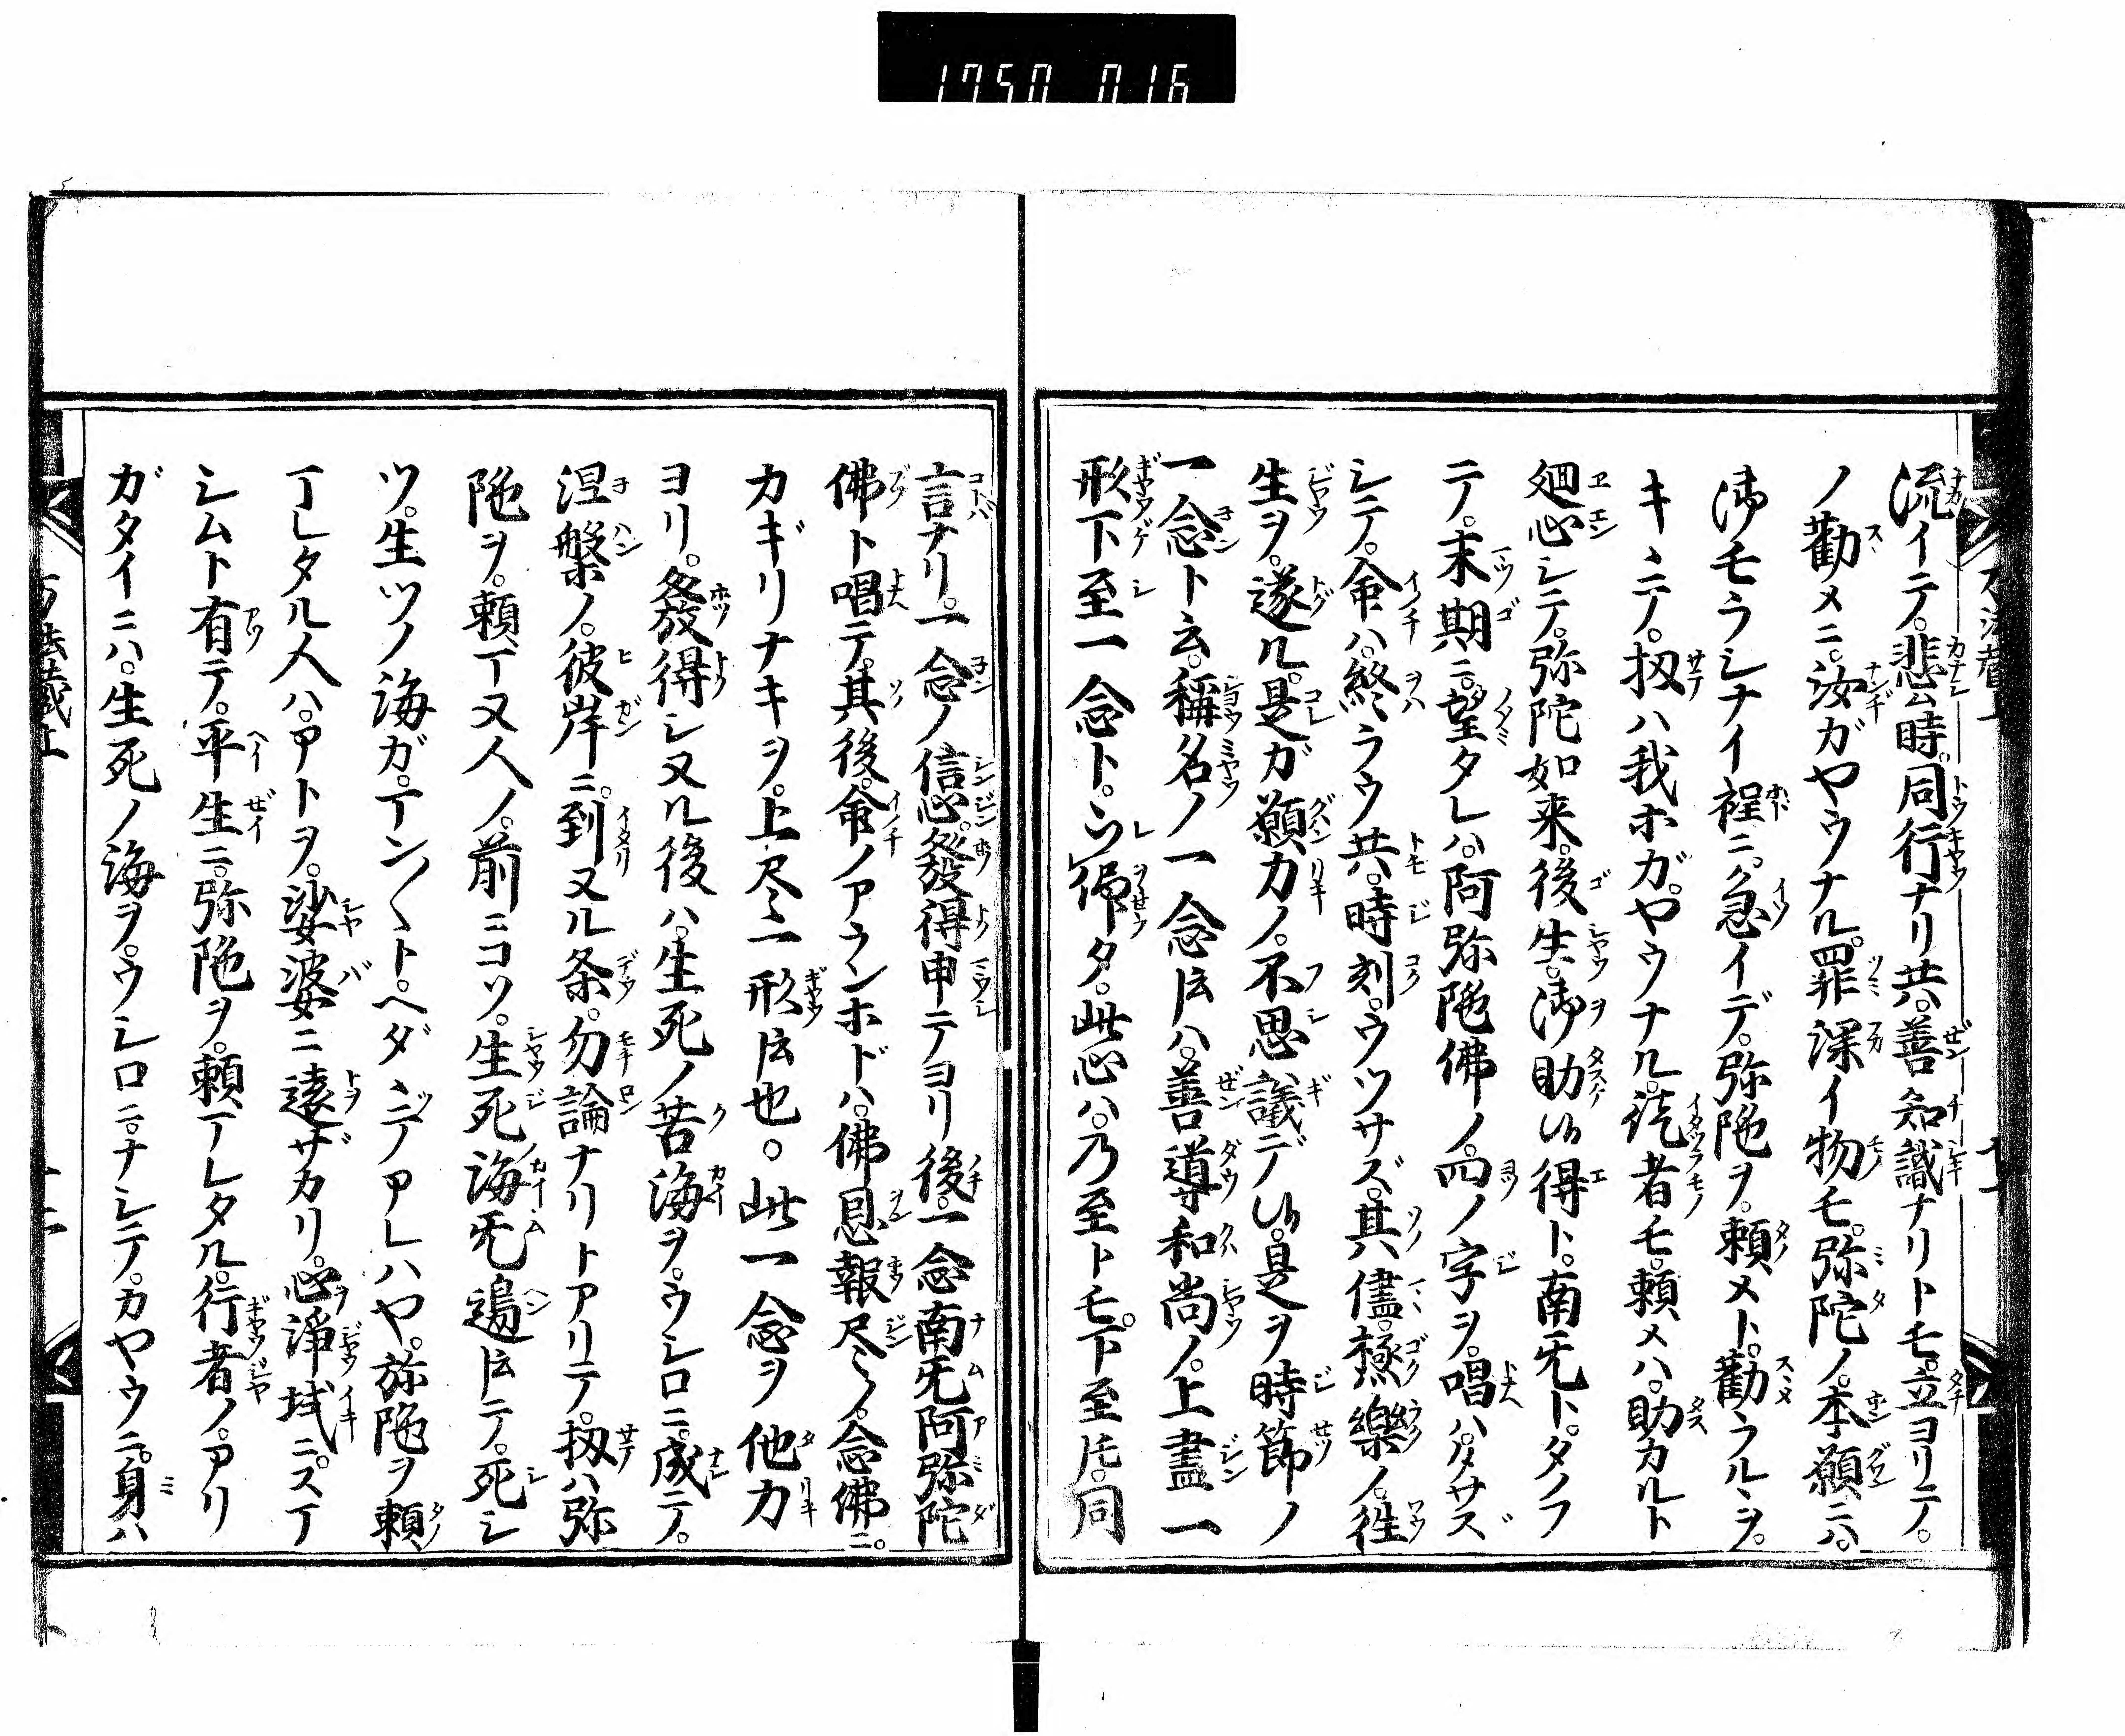 1750 016
流イテ。悲ム時。同行ナリ共。善知識ナリトモ。立ヨリテ。
ノ勸メニ。汝ガヤウナル。罪深イ物モ。弥陀ノ。本願ニハ。
沸モラシナイ程ニ。急イデ。弥陁ヲ。頼メト。勸ラルヽヲ。
キヽテ。扨ハ我ホガ。ヤウナル。徒者モ。頼メハ。助カルト
廻心シテ。弥陀如来。後生。御助ケ得ト。南旡ト。タノフ
テ。末期ニ。望タレハ。阿弥陁佛ノ。四ノ字ヲ。唱ハタサズ
シテ。命ハ。終ラウ共。時刻。ウツサズ。其儘。極樂ノ。徃
生ヲ。遂ル。是ガ願力ノ。不思議デ。是ヲ時節ノ
一念ト云。稱名ノ一念𪜈ハ。善導和尚ノ。上盡一
形下至一念ト。シ歸タ。此心ハ。乃至トモ。下至𪜈。同
言ナリ。一念ノ信心。發得申テヨリ後。一念南旡阿弥陀
佛ト唱テ。其後。命ノアランホドハ。佛恩報尽ノ。念佛ニ。
カギリナキヲ。上尽一形𪜈也。此一念ヲ他力
ヨリ。發得シヌル後ハ。生死ノ苦海ヲ。ウシロニ。成テ。
涅槃ノ。彼岸ニ。到ヌル条。勿論ナリトアリテ。扨ハ弥
陁ヲ。頼マヌ人ノ。前ニコソ。生死海旡邉𪜈テ。死シ
ツ。生ツノ海ガ。マン〳〵ト。ヘダヽテアレハヤ。弥陁ヲ頼
マレタル人ハ。アトヲ。娑婆ニ遠ザカリ。心浄域ニ。スマ
シムト有テ。平生ニ。弥陁ヲ。頼マレタル。行者ノ。アリ
ガタイニハ。生死ノ海ヲ。ウシロニ。ナシテ。カヤウニ。身ハ